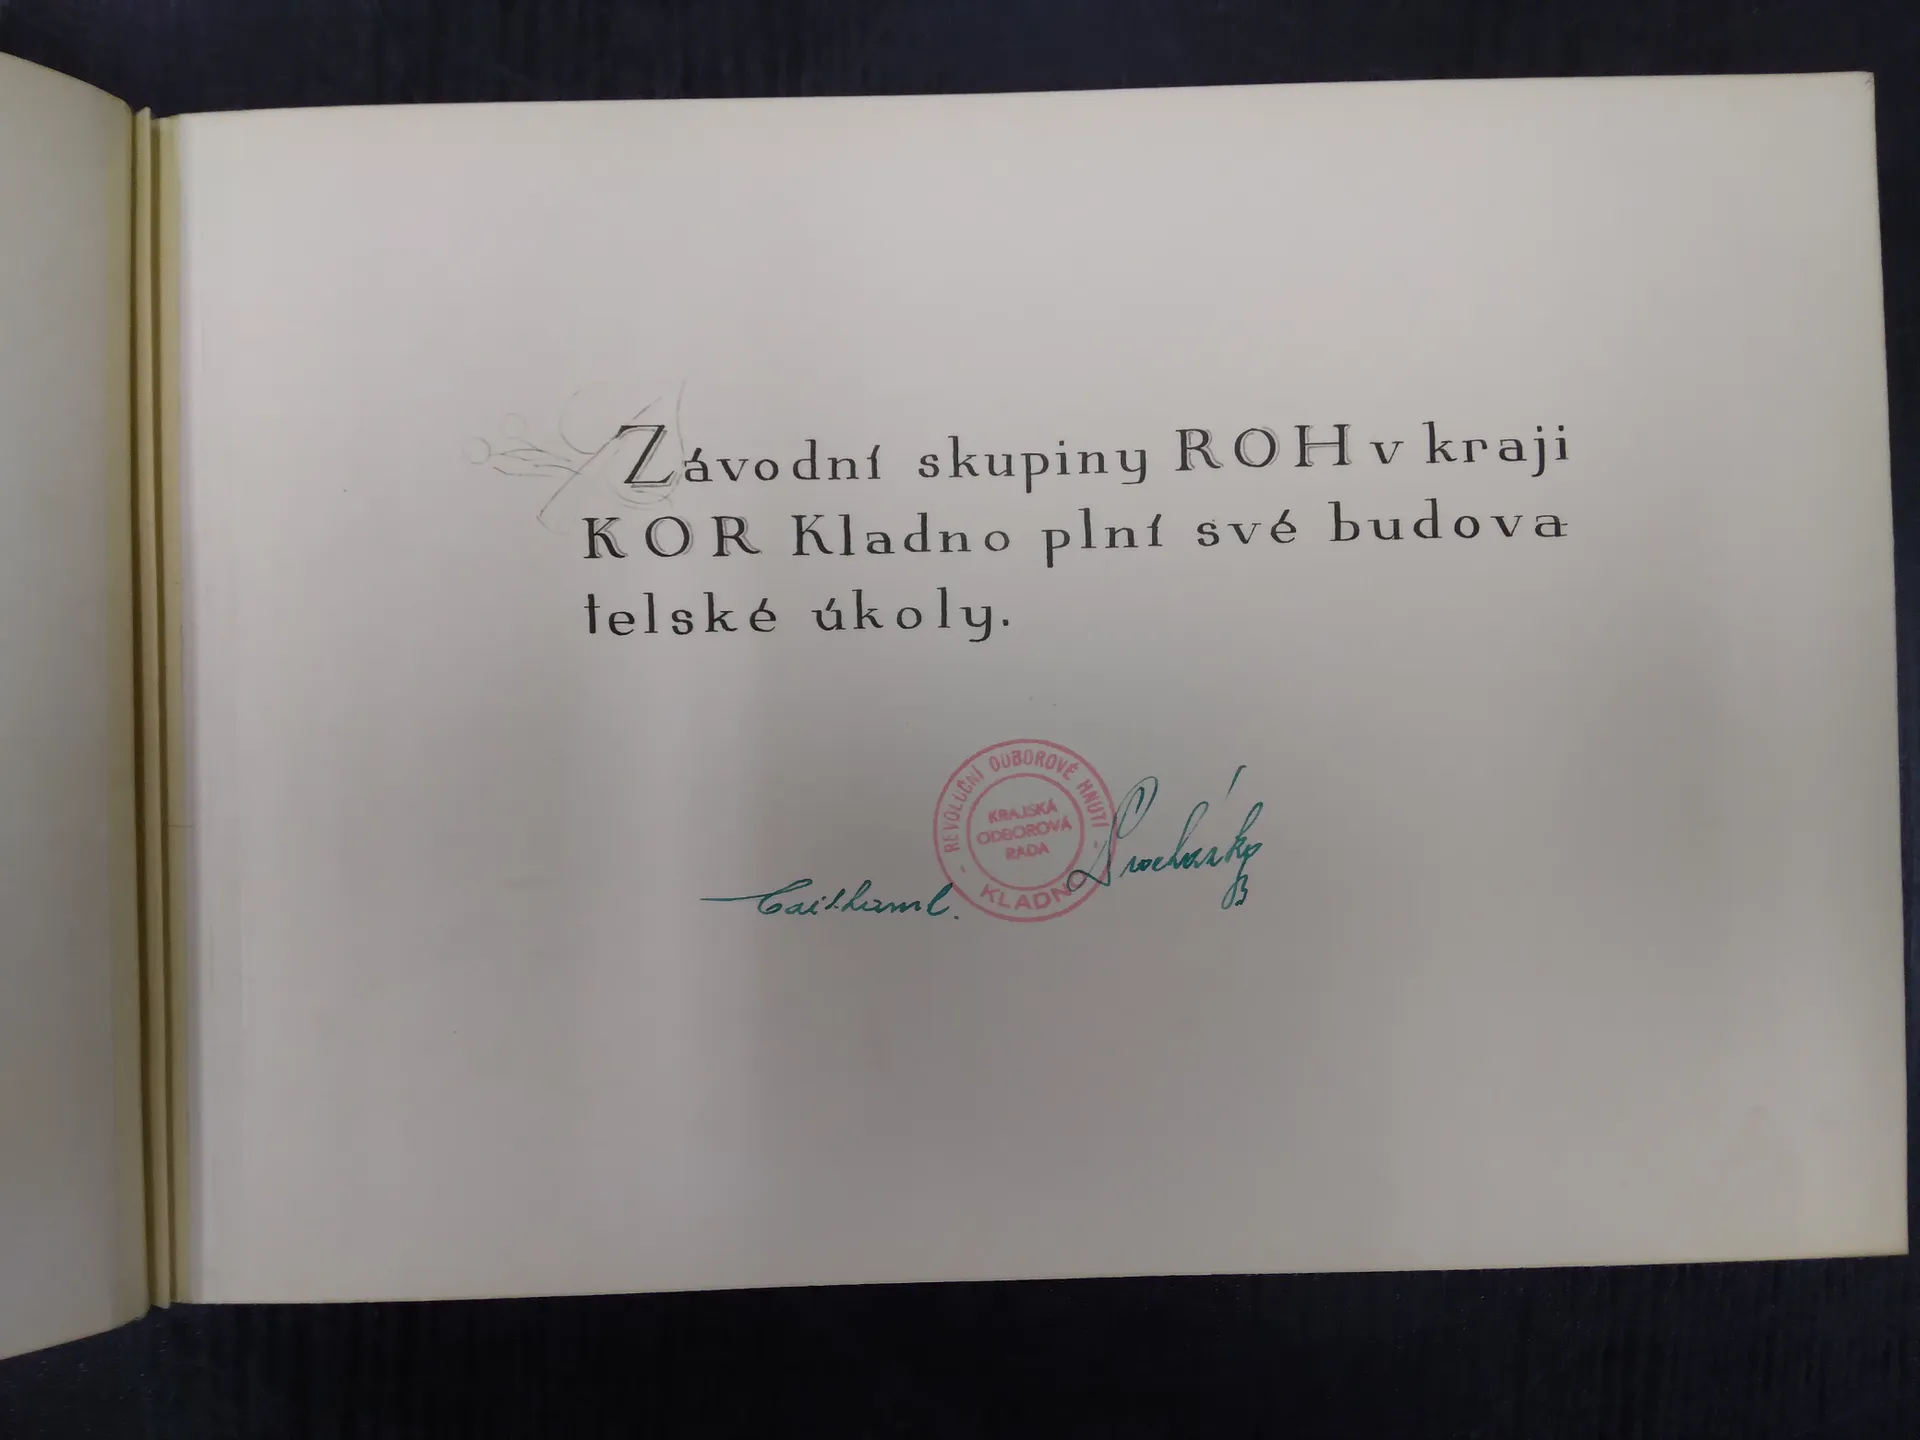 Závodní skupiny ROH v kraji
KOR Kladno plní své budova
telské úkoly.
REVOLUČNÍ ODBOROVÉ HNUTÍ
KRAJSKÁ
ODBOROVÁ
RADA
- KLADNO -
Procházka